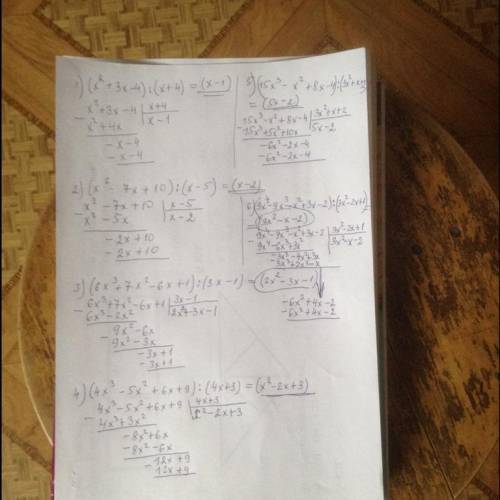 1) (x² + 3x - 4) : (x + 4) = (x - 1)
- x² + 3x - 4 | x + 4
x² + 4x | x - 1
- -x - 4
-x - 4
2) (x² - 7x + 10) : (x - 5) = (x - 2)
- x² - 7x + 10 | x - 5
x² - 5x | x - 2
- -2x + 10
-2x + 10
3) (6x³ + 7x² - 6x + 1) : (3x - 1) = (2x² + 3x - 1)
- 6x³ + 7x² - 6x + 1 | 3x - 1
6x³ - 2x² | 2x² + 3x - 1
- 9x² - 6x
9x² - 3x
- -3x + 1
-3x + 1
4) (4x³ - 5x² + 6x + 9) : (4x + 3) = (x² - 2x + 3)
- 4x³ - 5x² + 6x + 9 | 4x + 3
4x³ + 3x² | x² - 2x + 3
- -8x² + 6x
-8x² - 6x
- 12x + 9
12x + 9
5) (15x³ - x² + 8x - 4) : (3x² + x + 2)
= (5x - 2)
- 15x³ - x² + 8x - 4 | 3x² + x + 2
15x³ + 5x² + 10x | 5x - 2
- -6x² - 2x - 4
-6x² - 2x - 4
6) (9x⁴ - 9x³ - x² + 3x - 2) : (3x² - 2x + 1)
(3x² - x - 2)
- 9x⁴ - 9x³ - x² + 3x - 2 | 3x² - 2x + 1
9x⁴ - 6x³ + 3x² | 3x² - x - 2
- -3x³ - 4x² + 3x
-3x³ + 2x² - x
- -6x² + 4x - 2
-6x² + 4x - 2